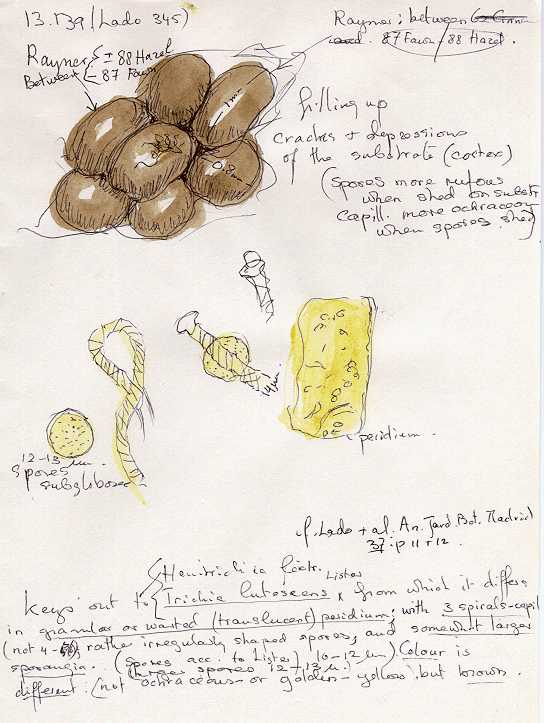 13.139 (Lado 345)
Rayner: between
87 Fawn - 88 Hazel.
Rayner ± 88 Hazel
Between - 87 Fawn
1 mm
0.8
filling up
cracks + depressions
of the substrate (cortex)
(spores more rufous
when shed on substr
Capill. more ochraceous
when spores shed)
14 µm.
peridium.
12-13 µm.
spores
subglobose
cf. Lado + al. An. Jard. Bot. Madrid
37: p 11 + 12.
Hemitrichia
Lister
Keys out to Trichia lutescens from which it differs
in granular or warted (translucent) peridium, with 3 spirals-capil
(not 4-5), rather irregularly shaped spores, and somewhat larger
sporangia. (Spores acc. to Lister) 10-12 µm) Colour is
(larger spores 12-13 µ.)
different: (not ochraceous- or golden-yellow but brown.